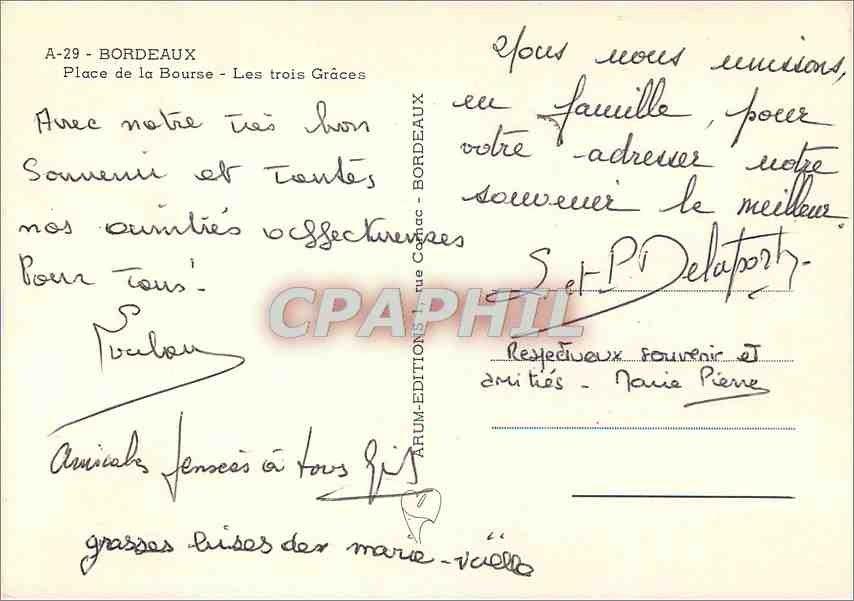 A-29 - BORDEAUX
Place de la Bourse - Les trois Grâces
Avec notre très bon
Souvenir et toutes
nos amitiés affectueuses
Pour tous
Amicales pensées à tous
grasses bises des marie-
ARUM-EDITIONS 1, rue Cornac - BORDEAUX
Nous nous unissons,
en famille, pour
votre adresser notre
souvenir le meilleur.
S et P. Delaporte
Respectueux souvenir et
amitiés - Marie Pierre
CPAPHIL